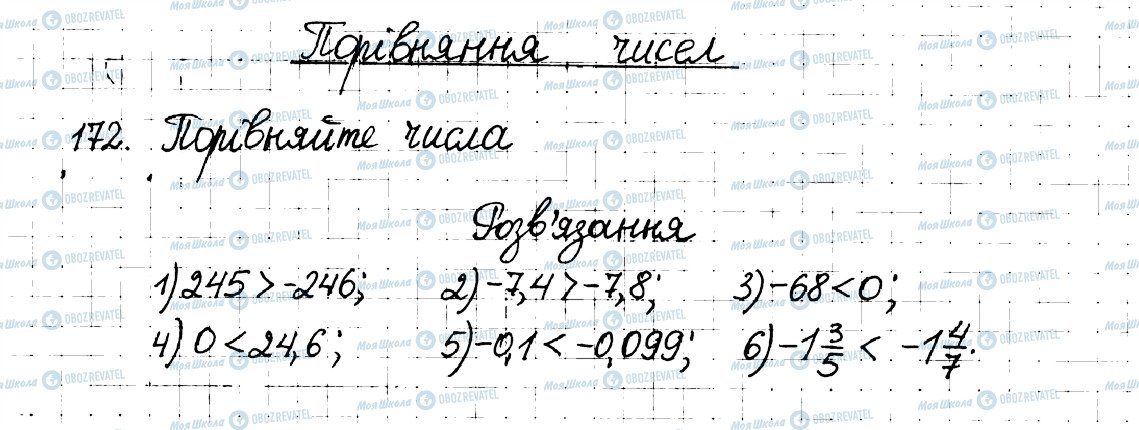 Порівняння чисел
172. Порівняйте числа
Розв'язання
1) 245 > -246; 2) -7,4 > -7,8; 3) -68 < 0;
4) 0 < 24,6; 5) -0,1 < -0,099; 6) -1 3/5 < -1 4/7.